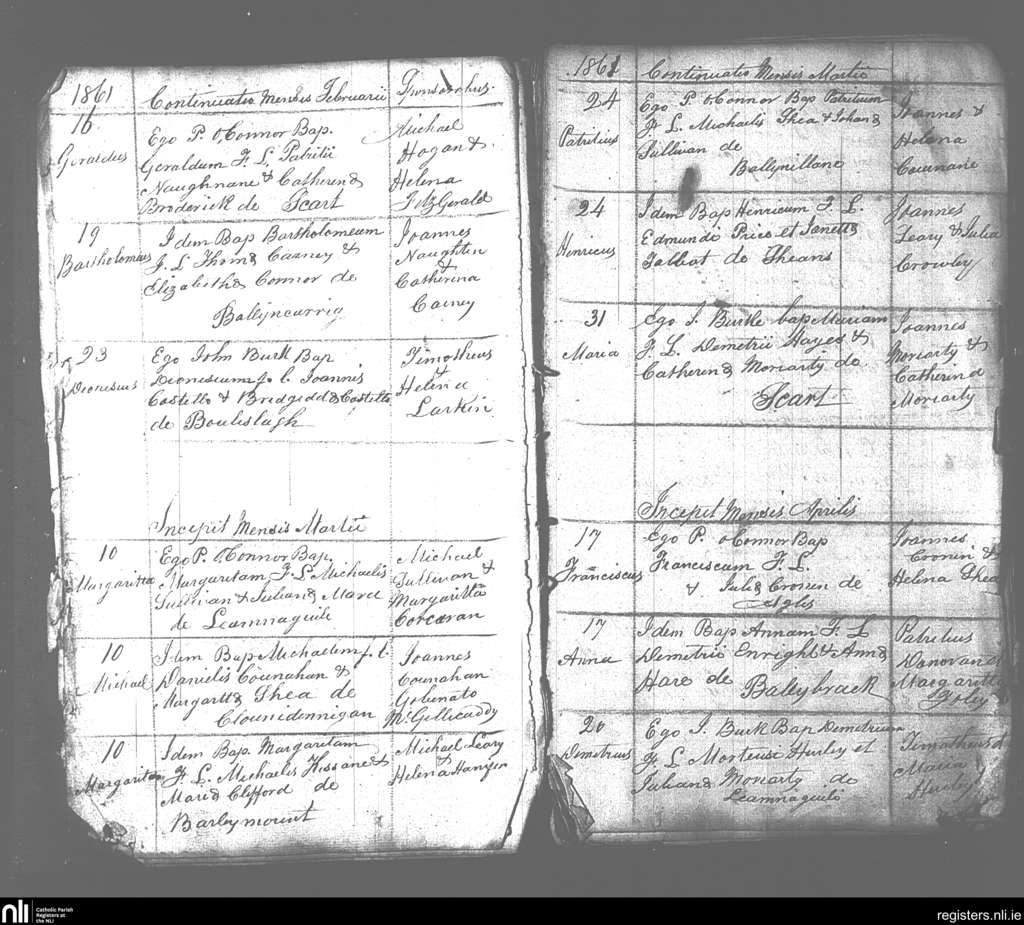 1861 Continuatio Mensis Februarii
16 Ego P. O,Connor Bap. Michael
Geraldus Geraldum F. L. Patritii Hogan &
Naughnane & Catherena Helena
Broderick de Scart FitzGerald
19 Idem Bap Bartholomeum Joannes
Bartholomeus F. L Thoma Carney & Naughten
Elizabetha Connor de &
Catherina
Ballyncarrig Carney
23 Ego John Burk Bap Timotheus
Dionisius Dionisium f. l. Joannis &
Costello & Bredgedda Costello Helena
de Boulislagh Larkin
Incepit Mensis Martii
10 Ego P. O,Connor Bap. Michael
Margaritta Margaritam F. L Michaelis Sullivan &
Sullivan & Juliana Mara Margaritta
de Leamnaguile Corcoran
10 Idem Bap Michaelem f. l. Joannes
Michael Danielis Counahan & Counahan
Margarita Shea de Gobinato
Clounidonnigan McGellicuddy
10 Idem Bap. Margaritam Michael Leary
Margaritta F. L. Michaelis Kissane & &
Maria Clifford de Helena Hanifen
Barleymount
1861 Continuatio Mensis Martio
24 Ego P. O Connor Bap Patritium Joannes &
Patritius F L. Michaelis Shea & Johana Helena
Sullivan de Counane
Ballynillane
24 Idem Bap Henricum F. L. Joannes
Henricus Edmundi Price et Janetta Leary & Julia
Talbot de Sheans Crowley
31 Ego J. Burke bap Mariam Joannes
Maria F. L. Demetrii Hayes & Moriarty &
Catherina Moriarty de Catherina
Scart Moriarty
Incepit Mensis Aprilis
17 Ego P. O Connor Bap Joannes
Franciscus Franciscum F. L. Cronin &
& Julia Cronin de Helena Shea
Aglis
17 Idem Bap Annam F. L Patritius
Anna Demetrii Enright & Anna Donovan &
Hare de Ballybrack Margaritta
Foley
20 Ego J. Burk Bap Demetrium Timotheus et
Demetrius F L Morteusi Hurley et Maria
Juliana Moriarty de Hurley
Leamnaguilo
nli
Catholic Parish
Registers at
the NLI
registers.nli.ie